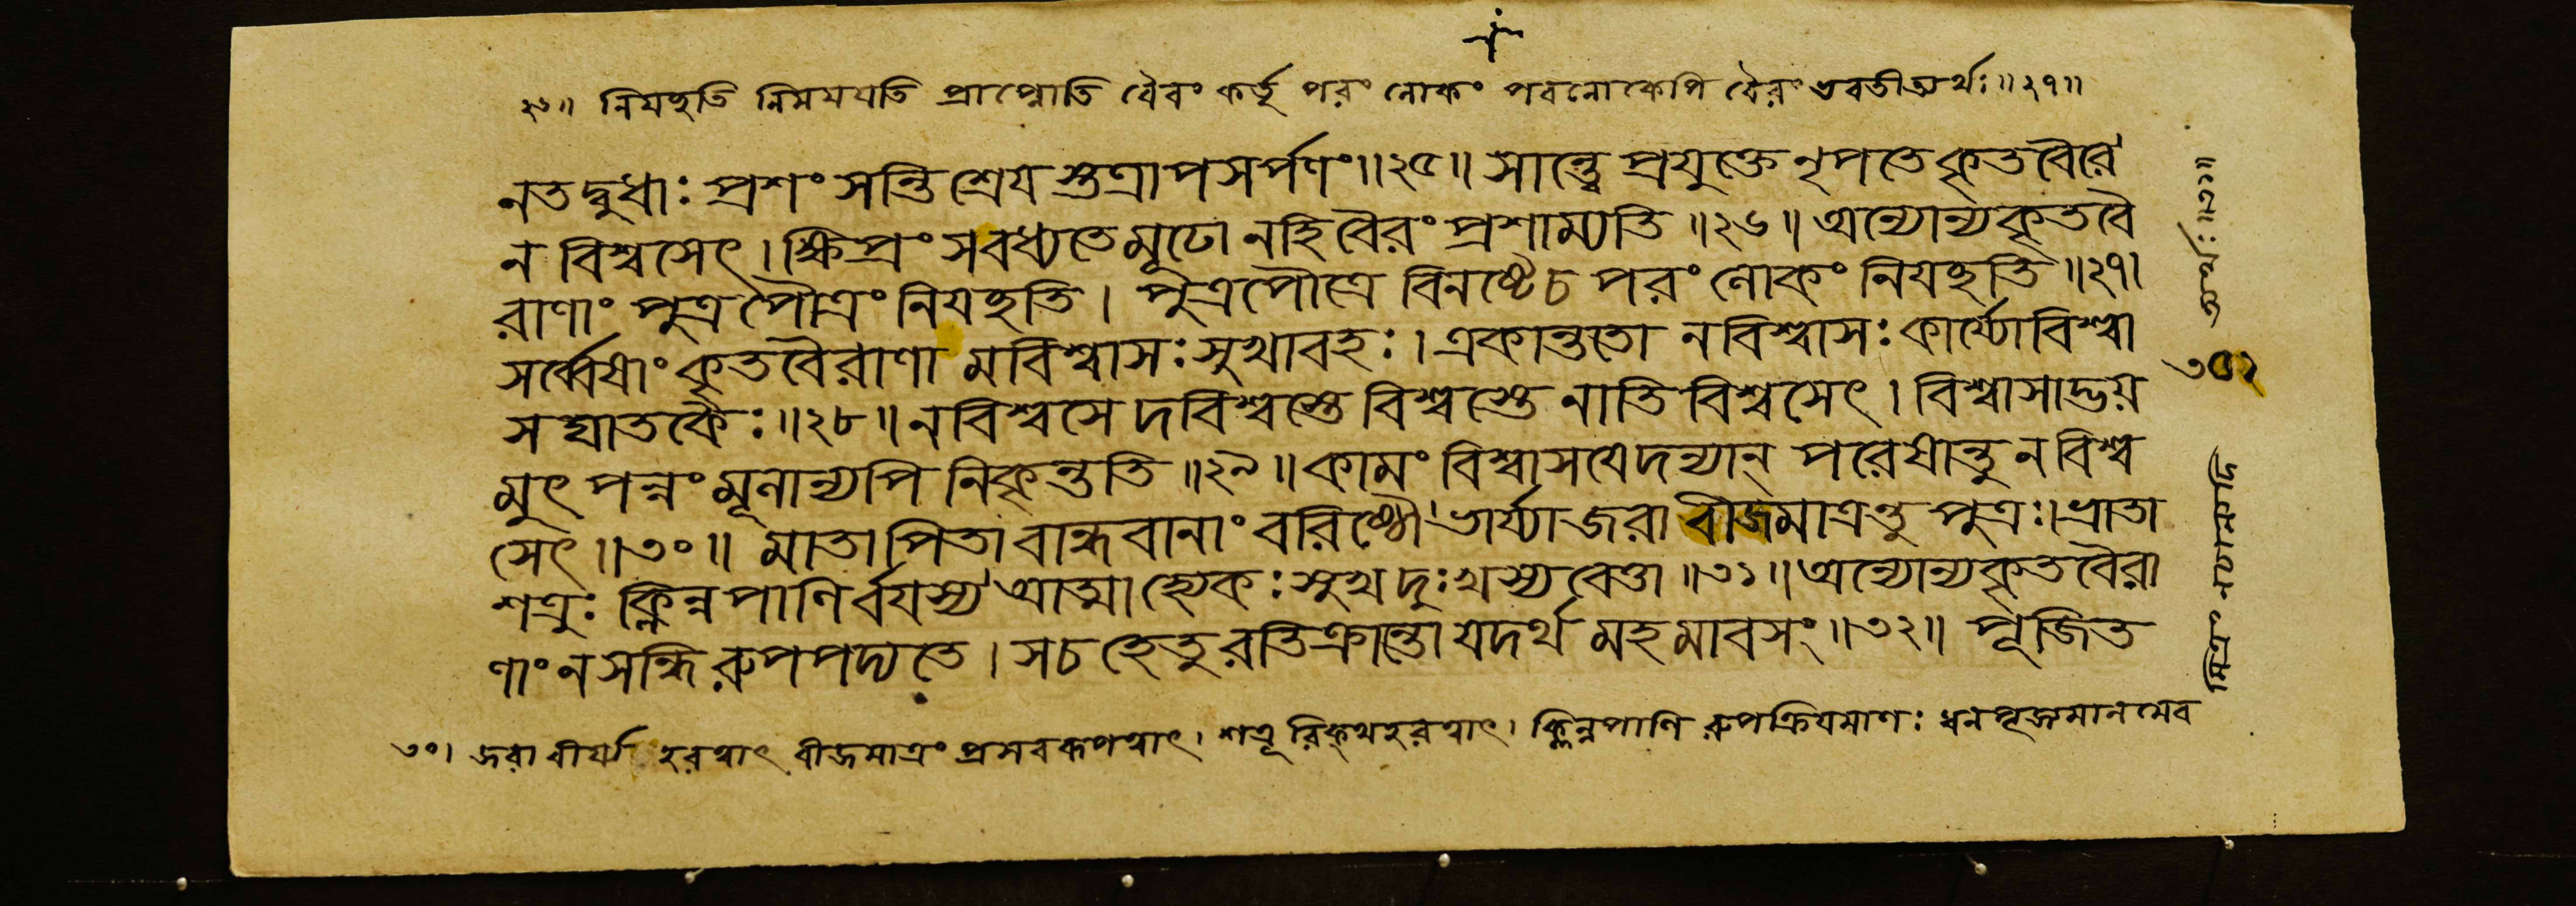 ২৬॥ নিযচ্ছতি নিগময়তি প্রাপ্নোতি বৈরং কর্তৃ পরং লোকং পরলোকেপি বৈরং ভবতীত্যর্থঃ॥২৭॥
নতদ্বুধাঃ প্রশংসন্তি শ্রেয়স্তত্রাপসর্পণং॥২৫॥ সান্ত্বে প্রযুক্তে নৃপতে কৃতবৈরে
ন বিশ্বসেৎ। ক্ষিপ্রং সবধ্যতে মূঢো নহি বৈরং প্রশাম্যতি॥২৬॥ অন্যোন্যকৃতবৈ
রাণাং পুত্রপৌত্রং নিযচ্ছতি। পুত্রপৌত্রে বিনষ্টেচ পরং লোকং নিযচ্ছতি॥২৭।
সর্ব্বেষাং কৃতবৈরাণা মবিশ্বাসঃ সুখাবহঃ। একান্ততো নবিশ্বাসঃ কার্য্যোবিশ্বা
সঘাতকৈঃ॥২৮॥ নবিশ্বসে দবিশ্বস্তে বিশ্বস্তে নাতি বিশ্বসেৎ। বিশ্বাসাদ্ভয়
মুৎপন্নং মূলান্যপি নিকৃন্ততি॥২৯॥ কামং বিশ্বাসযেদন্যান্ পরেষান্তু নবিশ্ব
সেৎ॥৩০॥ মাতা পিতা বান্ধবানাং বরিষ্ঠৌ ভার্য্যা জরা বীজমাত্রন্তু পুত্রঃ। ভ্রাতা
শত্রুঃ ক্লিন্নপাণির্বযস্য আত্মা হ্যেকঃ সুখদুঃখস্য বেত্তা॥৩১॥ অন্যোন্যকৃতবৈরা
ণাং নসন্ধি রুপপদ্যতে। সচ হেতু রতিক্রান্তো যদর্থ মহমাবসং॥৩২॥ পূজিত
৩০। জরা বীর্য্য হরত্বাৎ বীজমাত্রং প্রসবরূপত্বাৎ। শত্রু রিক্থহরত্বাৎ। ক্লিন্নপাণি রুপক্রিযমাণঃ ধন
মিত্রং নত্বন্যদি
ত্যর্থঃ॥৩১॥
৩০২